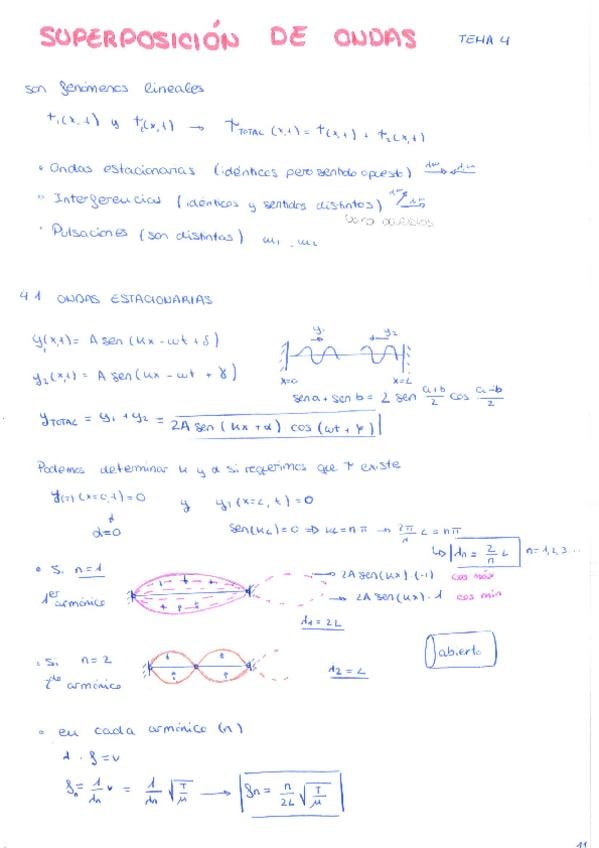 SUPERPOSICIÓN DE ONDAS TEMA 4
son fenómenos lineales
Ψ₁(x,t) y Ψ₂(x,t) → Ψ_TOTAL (x,t) = Ψ₁(x,t) + Ψ₂(x,t)
• Ondas estacionarias (idénticas pero sentido opuesto)
• Interferencias (idénticas y sentidos distintos)
• Pulsaciones (son distintas) ω₁, ω₂
4.1 ONDAS ESTACIONARIAS
y₁(x,t) = A sen (kx - ωt + δ)
y₁ y₂
x=0 x=L
y₂(x,t) = A sen (kx - ωt + γ)
sen a + sen b = 2 sen (a+b)/2 cos (a-b)/2
y_TOTAL = y₁ + y₂ = 2A sen (kx + α) cos (ωt + γ)
Podemos determinar k y α si requerimos que Ψ existe
y_(T) (x=0,t) = 0 y y_T (x=L, t) = 0
α=0 sen(kL) = 0 ⇒ kL = nπ → 2π/λ L = nπ
↳ λn = 2/n L n=1,2,3...
• Si n=1
1er armónico
→ 2A sen(kx)·(-1) cos máx
→ 2A sen(kx)·1 cos mín
λ1 = 2L
• Si n=2
2do armónico
λ2 = L
abierto
• en cada armónico (n)
λ · f = v
fn = 1/λn v = 1/λn √(T/μ) → fn = n/2L √(T/μ)
11